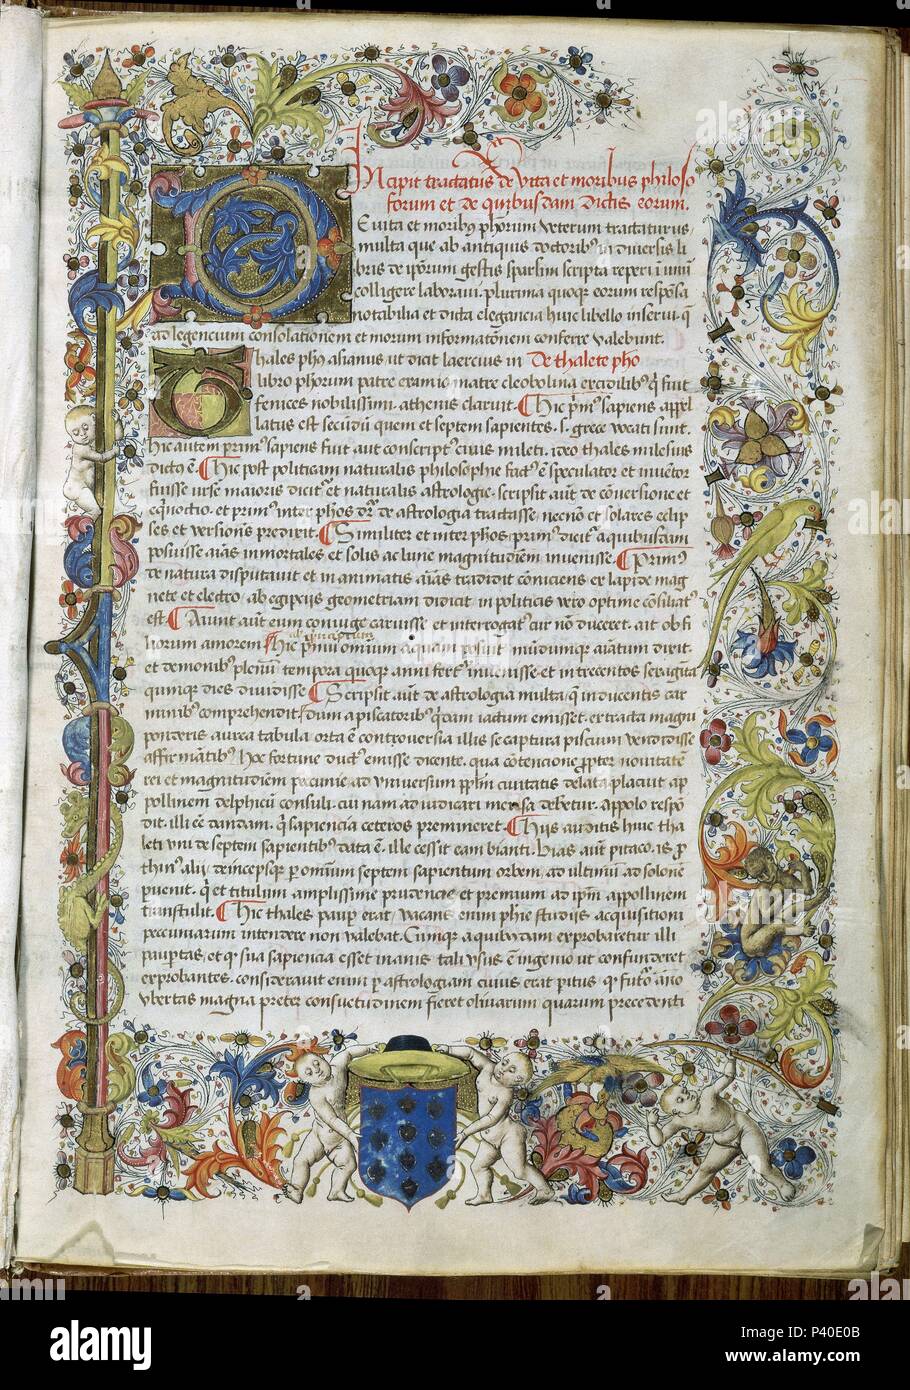 Incipit tractatus de vita et moribus philoso
forum et de quibusdam dictis eorum.
De vita et moribus phorum veterum tractaturus
multa que ab antiquis doctoribus in diversis li
bris de iporum gestis sparsim scripta reperi i unū
colligere laboravi. plurima quoque eorum responsa
notabilia et dicta elegancia huic libello inserui. q̄
ad legencium consolationem et morum informatonem conferre valebunt.
Thales pho asianus ut dicit laercius in De thalete pho
libro phorum patre matre cleobolina
fenices nobilissimi. athenis claruit. Hic pm9 sapiens appl
latus est secūdū quem et septem sapientes. s. grece vocati sunt.
hic autem prim9 sapiens fuit aut conscript9 civis mileti. ideo thales milesius
dict9 ē. Hic post politicam naturalis philosophie fact9 ē speculator et inventor
fuisse urse maioris dicit et naturalis astrologie. scripsit aut de cōversione et
eqnoctio. et prim9 inter phos de astrologia tractasse necnō et solares eclip
ses et versiones predixit. Similiter et inter phos prim9 dicit a quibusdam
posuisse aīas inmortales et solis ac lune magnitudīem invenisse. Prim9
de natura disputavit et in animatis aīas tradidit cōniciens ex lapide mag
nete et electro. ab egipciis geometriam didicit in politicis vero optime
est. Aiunt aūt eum coniuge caruisse et interrogat9 cur nō duceret. ait ob fi
ab principium
liorum amorem Hic pm9 omnium aquam posuit. mundumque aīatum dixit
et demonib9 plenū tempora quoque anni invenisse et in trecentos sexagīta
quinque dies divisisse. Scripsit aūt de astrologia multa q in ducentis car
minib9 comprehendit. dum a piscatorib9 qdam iactum emisset. extracta magni
ponderis aurea tabula orta ē controversia illis se captura piscium vendidisse
affirmātib9 hoc fortune duct9 emisse dicente. qua cōtencione propter novitatē
rei et magnitudīem pecunie ad universum pplm civitatis delata placuit ap
pollinem delphicū consuli. cui nam adiudicari mensa debetur. appolo respō
dit. illi eē dandam. q sapiencia ceteros premineret. Hiis auditis huic tha
leti uni de septem sapientib9 data ē. ille cessit eam bianti. bias aūt pitaco. is
alii deincepsque p omnium septem sapientum orbem. ad ultimū ad solonē
pvenit. q et titulum amplissime prudencie et premium ad ipm appollinem
transtulit. Hic thales paup erat vacans enim phie studiis acquisitioni
pecuniarum intendere non valebat. Cumque a quibusdam exprobaretur illi
paupertas. et q sua sapiencia esset inanis tali usus ē ingenio ut confunderet
exprobantes. consideravit enim p astrologiam cuius erat pitus q fut9 āno
ubertas magna preter consuetudinem fieret olivarum quarum precedenti
alamy
www.alamy.com
P40E0B